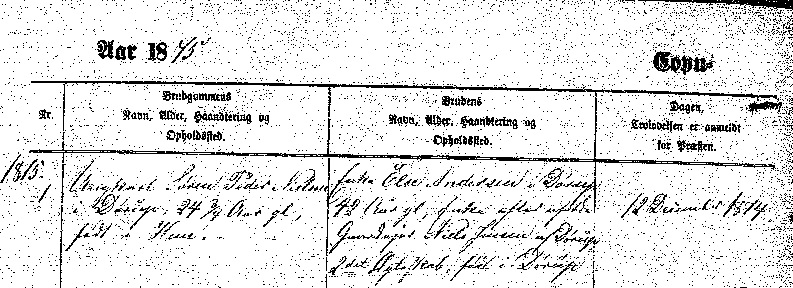 Aar 1845
Copu-
Nr.
Brudgommens
Navn, Alder, Haandtering og
Opholdssted.
Brudens
Navn, Alder, Haandtering og
Opholdssted.
Dagen,
Trolovelsen er anmeldt
for Præsten.
1815.
1
Ungkarl Søren Peder Nielsen
i Dørup, 24 3/4 Aar gl,
født i
Enke Else Andersen i Dørup
48 Aar gl, Enke efter afdøde
Gaardmand Niels Jensen af Dørup
2det Ægteskab, født i Dørup
12 December 1814.